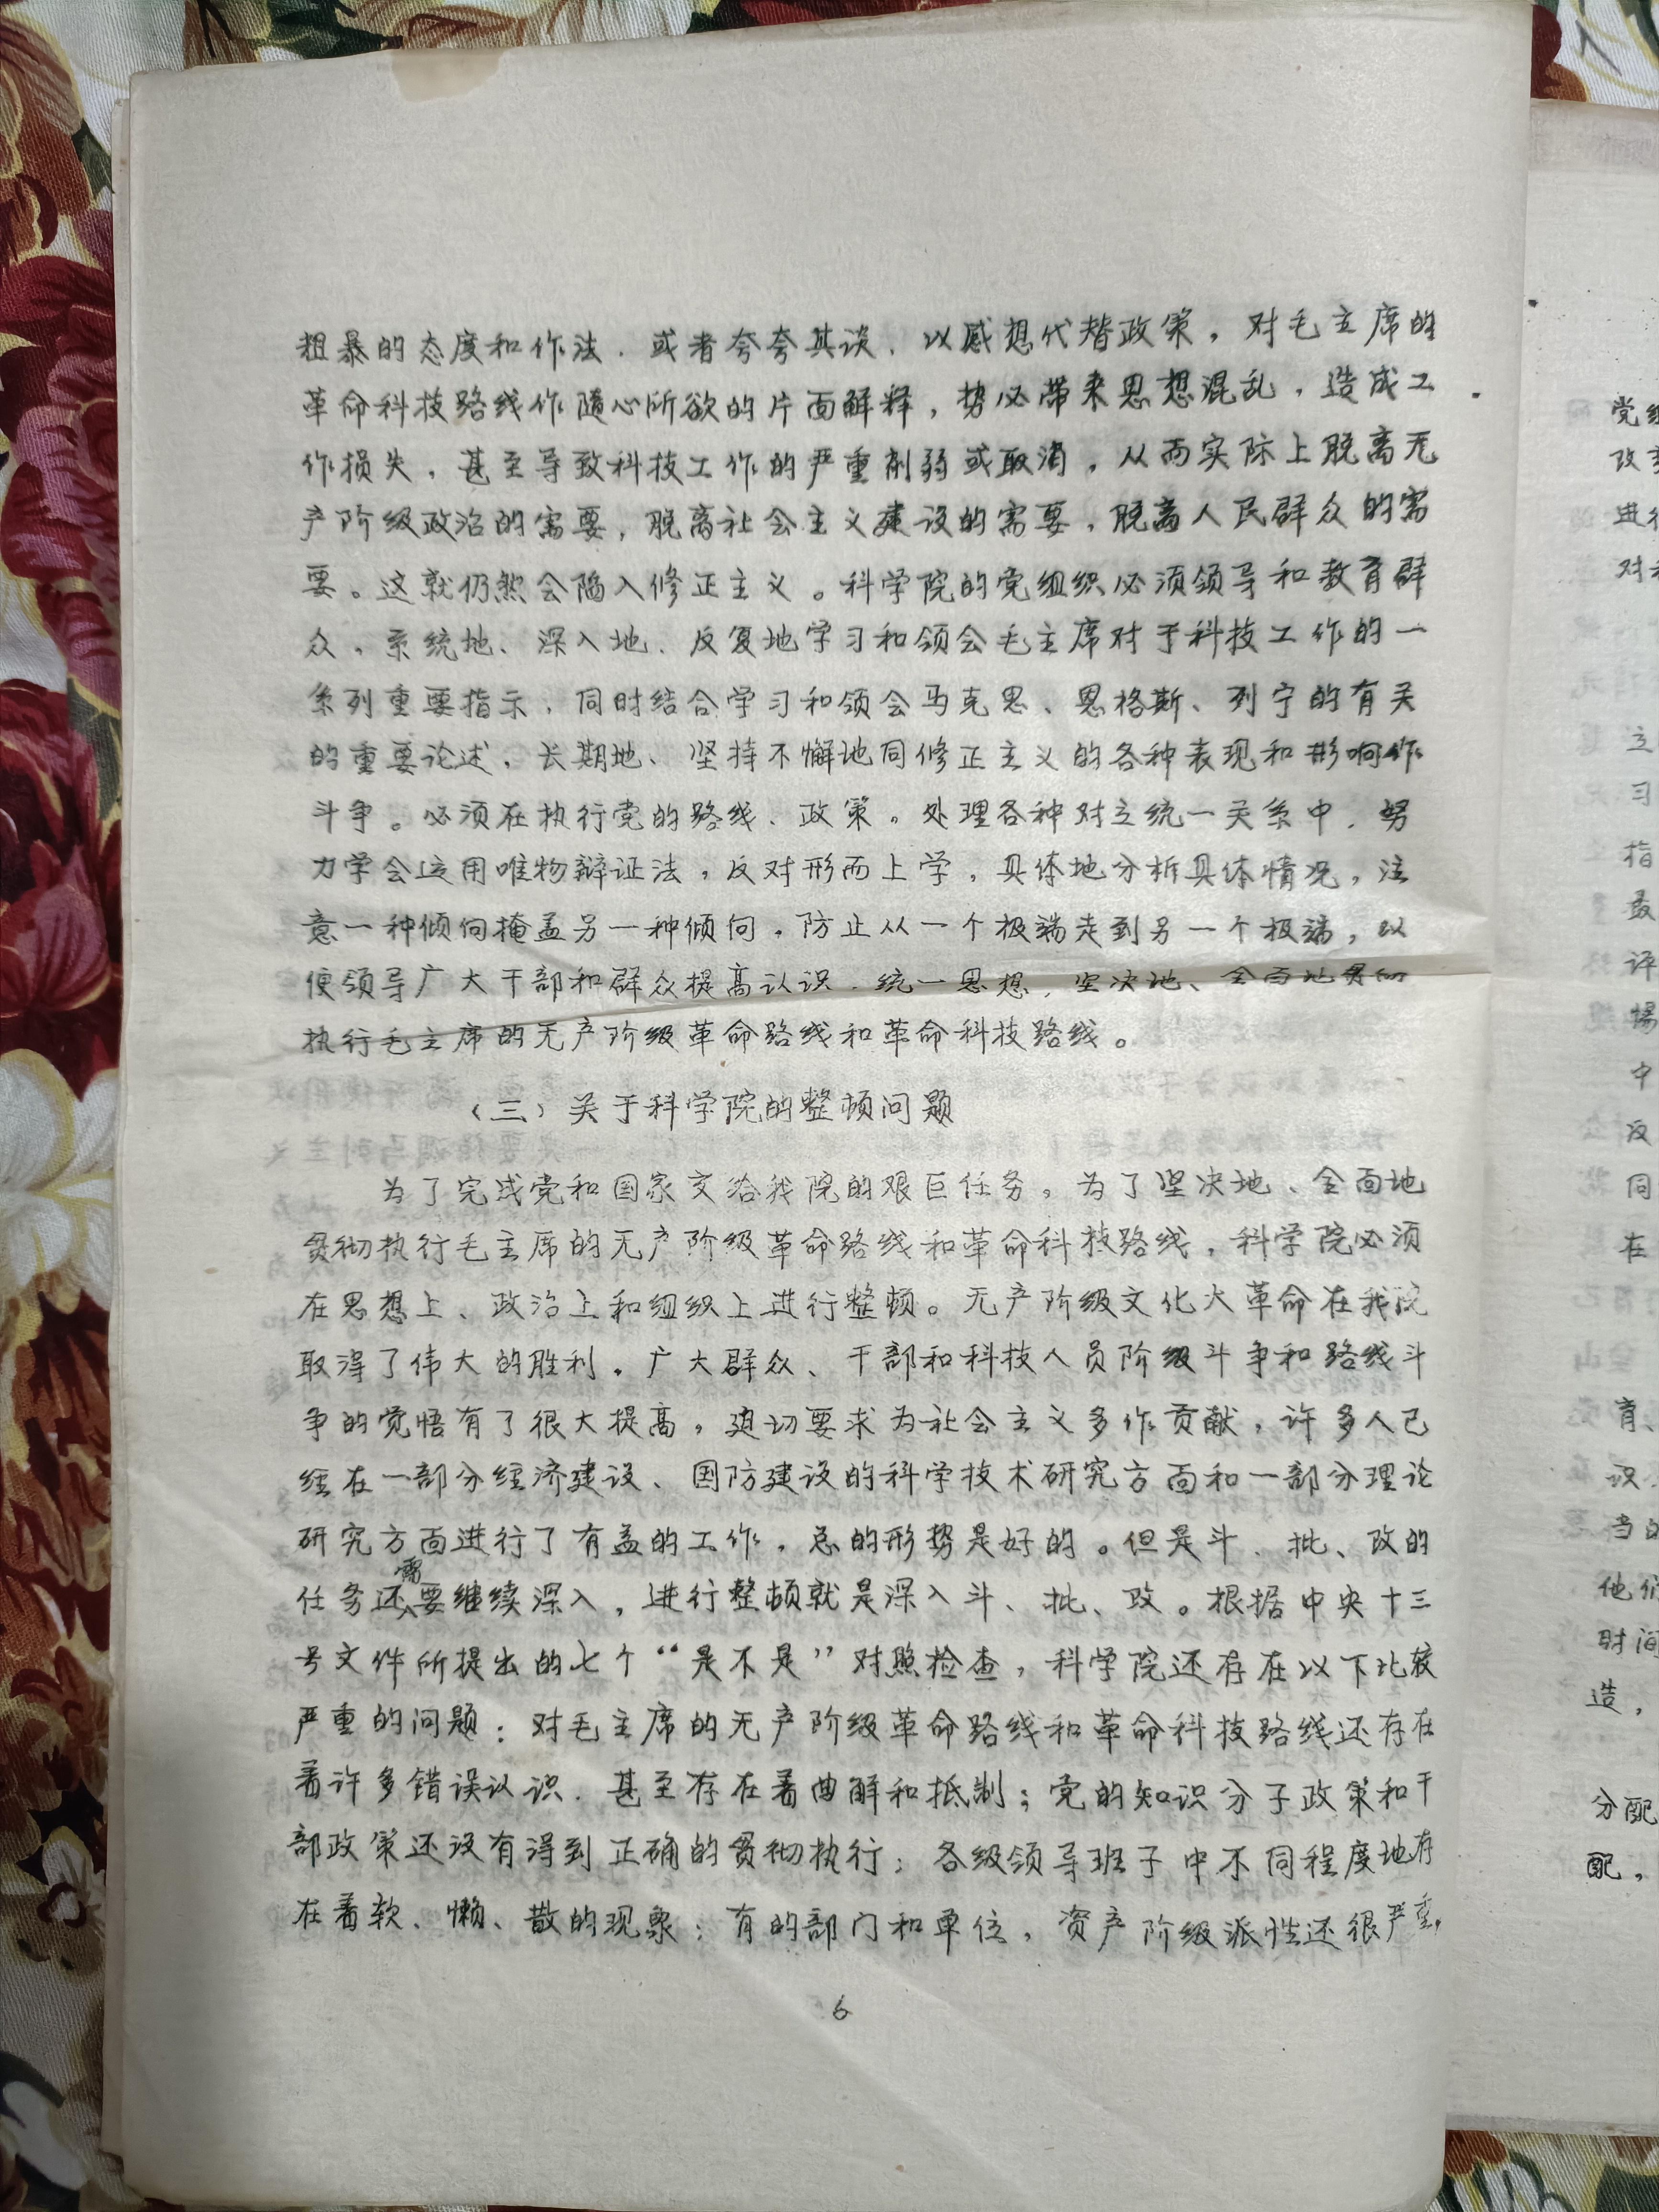 粗暴的态度和作法，或者夸夸其谈，以感想代替政策，对毛主席的
革命科技路线作随心所欲的片面解释，势必带来思想混乱，造成工
作损失，甚至导致科技工作的严重削弱或取消，从而实际上脱离无
产阶级政治的需要，脱离社会主义建设的需要，脱离人民群众的需
要。这就仍然会陷入修正主义。科学院的党组织必须领导和教育群
众，系统地、深入地、反复地学习和领会毛主席对于科技工作的一
系列重要指示，同时结合学习和领会马克思、恩格斯、列宁的有关
的重要论述，长期地、坚持不懈地同修正主义的各种表现和影响作
斗争。必须在执行党的路线、政策，处理各种对立统一关系中，努
力学会运用唯物辩证法，反对形而上学，具体地分析具体情况，注
意一种倾向掩盖另一种倾向，防止从一个极端走到另一个极端，以
便领导广大干部和群众提高认识，统一思想，坚决地、全面地贯彻
执行毛主席的无产阶级革命路线和革命科技路线。
（三）关于科学院的整顿问题
为了完成党和国家交给我院的艰巨任务，为了坚决地、全面地
贯彻执行毛主席的无产阶级革命路线和革命科技路线，科学院必须
在思想上、政治上和组织上进行整顿。无产阶级文化大革命在我院
取得了伟大的胜利，广大群众、干部和科技人员阶级斗争和路线斗
争的觉悟有了很大提高，迫切要求为社会主义多作贡献，许多人已
经在一部分经济建设、国防建设的科学技术研究方面和一部分理论
研究方面进行了有益的工作，总的形势是好的。但是斗、批、改的
任务还需要继续深入，进行整顿就是深入斗、批、改。根据中央十三
号文件所提出的七个“是不是”对照检查，科学院还存在以下比较
严重的问题：对毛主席的无产阶级革命路线和革命科技路线还存在
着许多错误认识，甚至存在着曲解和抵制；党的知识分子政策和干
部政策还没有得到正确的贯彻执行；各级领导班子中不同程度地存
在着软、懒、散的现象；有的部门和单位，资产阶级派性还很严重，
6
党
改
进
对
立
习
指
最
评
中
反
同
在
育、
识
当
他们
时间
造，
分配
配，